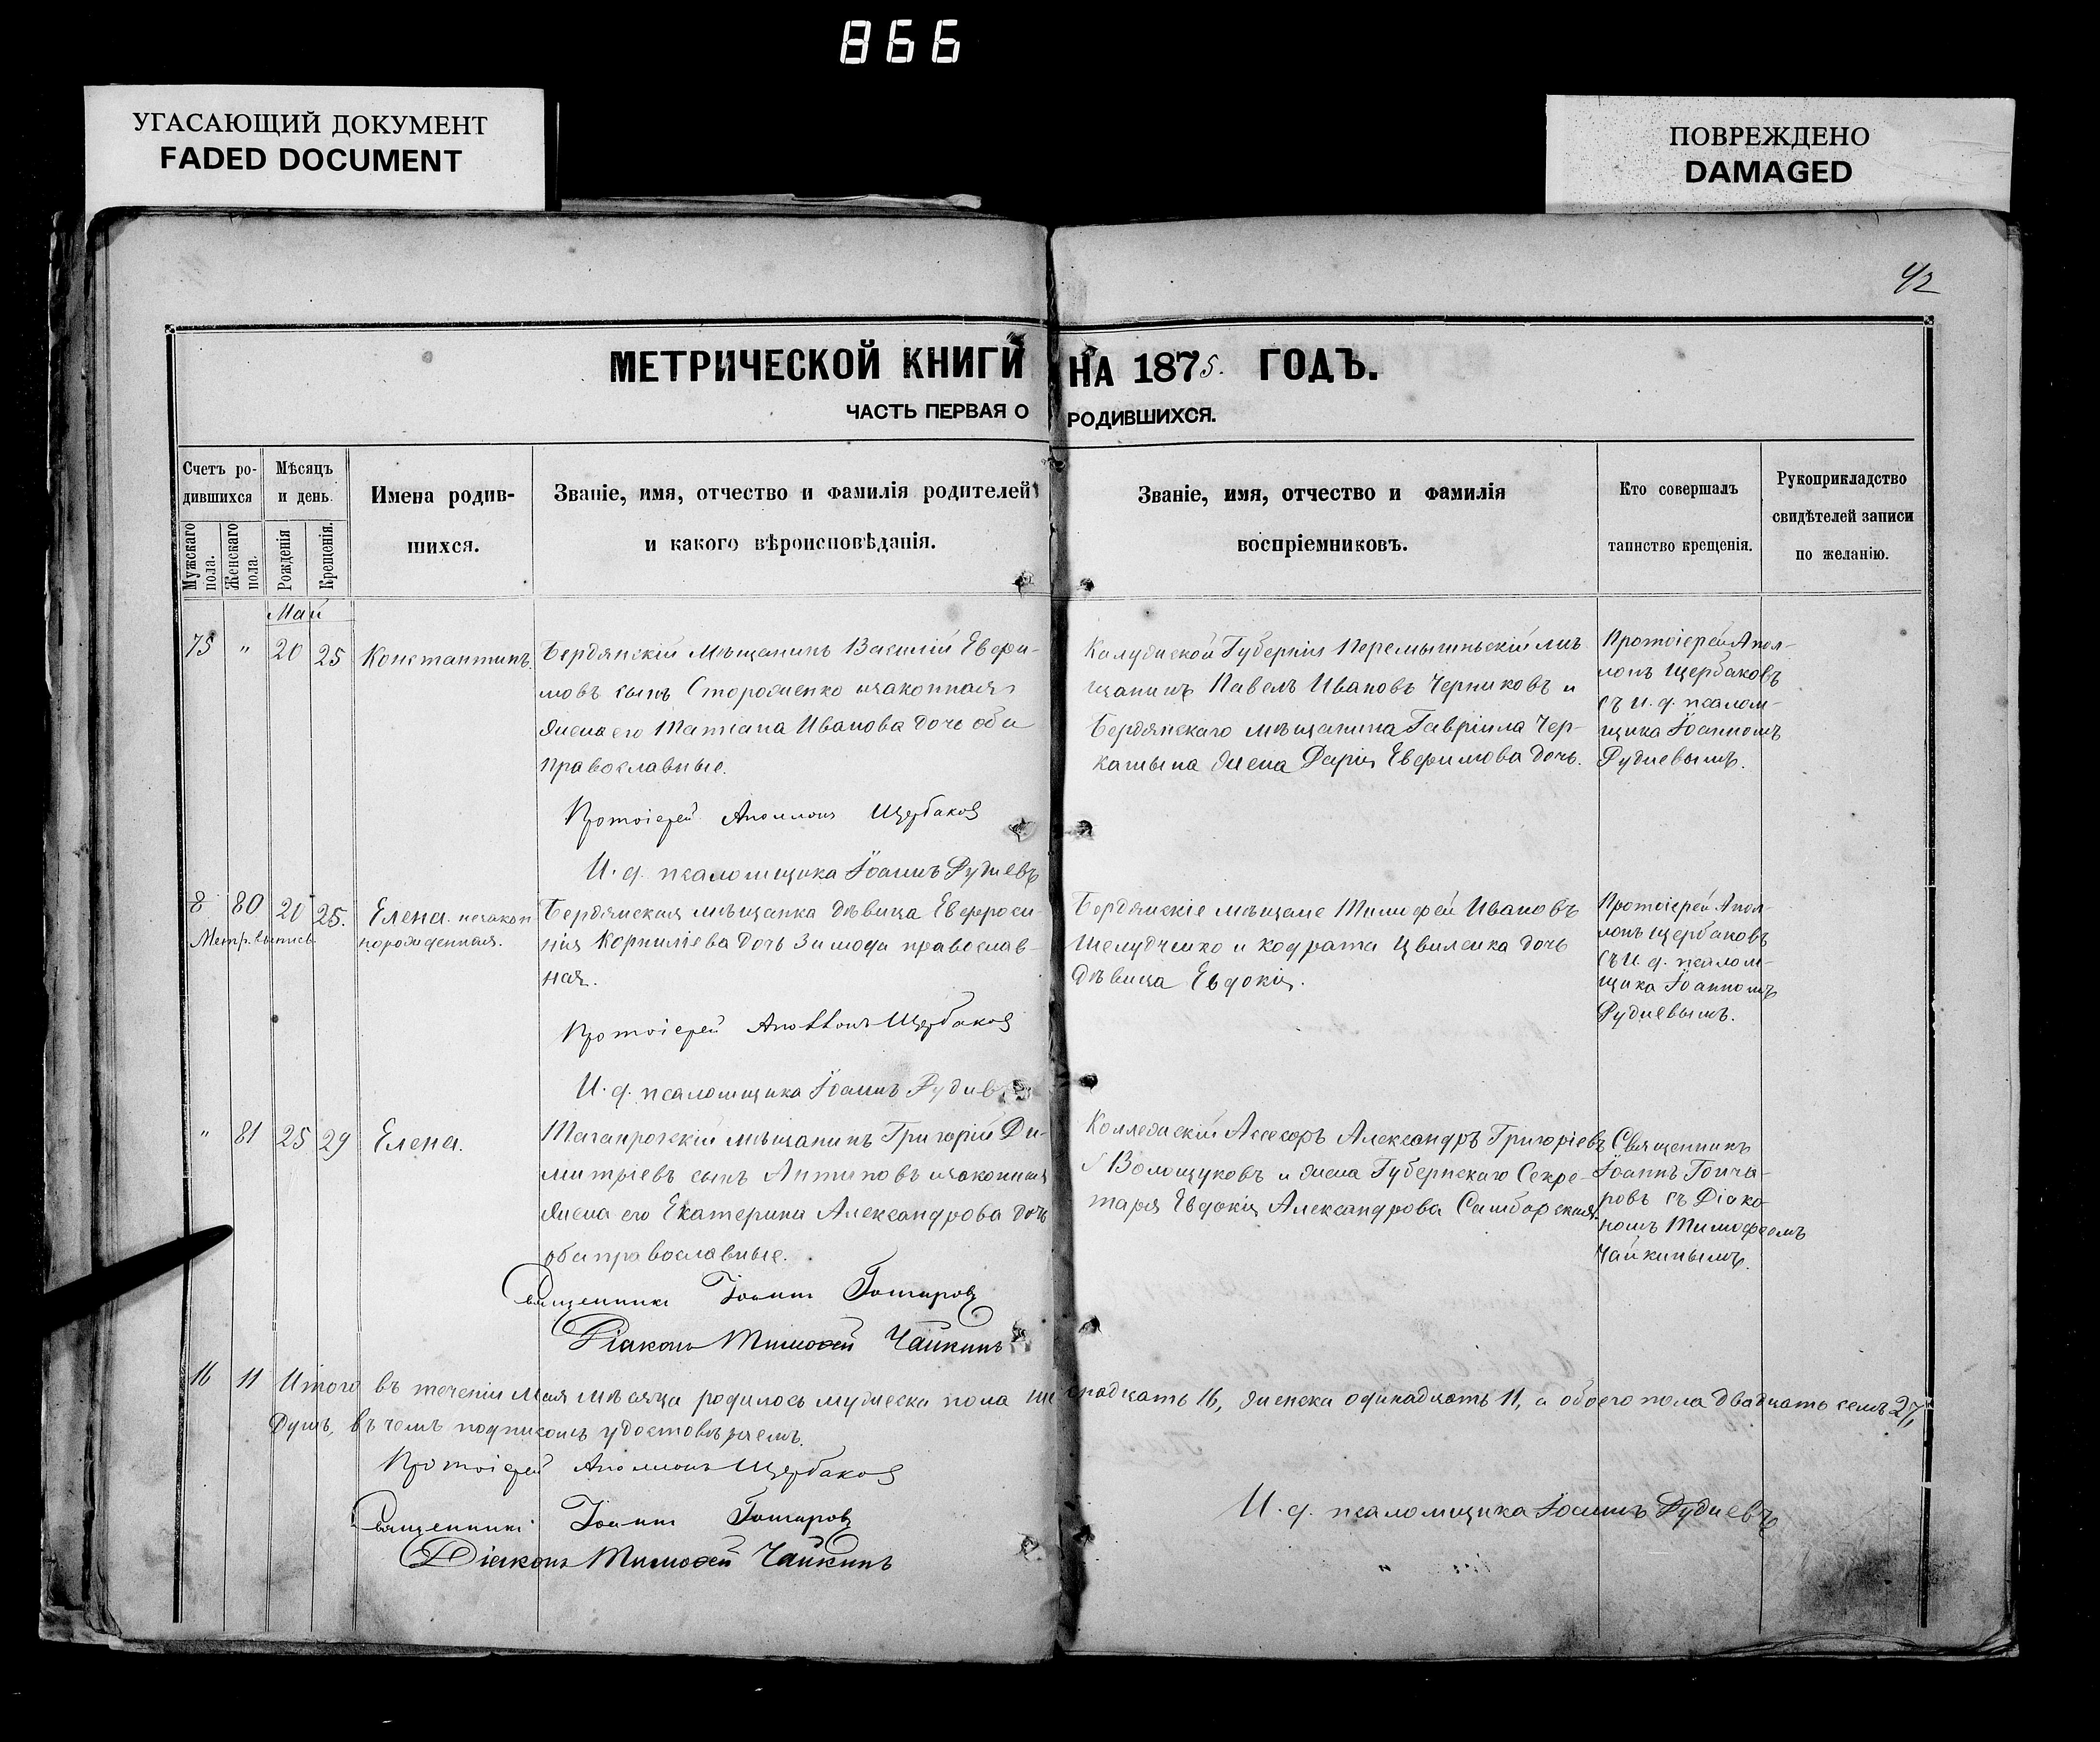 866
УГАСАЮЩИЙ ДОКУМЕНТ
FADED DOCUMENT
ПОВРЕЖДЕНО
DAMAGED
42
МЕТРИЧЕСКОЙ КНИГИ НА 1875. ГОДЪ.
ЧАСТЬ ПЕРВАЯ О РОДИВШИХСЯ.
Счетъ ро-
дившихся
Мужскаго пола.
Женскаго пола.
Мѣсяцъ
и день.
Рожденія
Крещенія.
Имена родив-
шихся.
Званіе, имя, отчество и фамилія родителей
и какого вѣроисповѣданія.
Званіе, имя, отчество и фамилія
воспріемниковъ.
Кто совершалъ
таинство крещенія.
Рукоприкладство
свидѣтелей записи
по желанію.
Май
75 " 20 25 Константинъ.
Бердянскій Мѣщанинъ Василій Евфи-
мовъ сынъ Стороженко изаконная
жена его Татіана Иванова дочь оба
православные.
Калужской Губерніи Перемышльскій мѣ-
щанинъ Павелъ Ивановъ Черниковъ и
Бердянскаго мѣщанина Гавріила Чер-
жена Дарія Евфимова дочь.
Протоіерей Апол-
лонъ Щербаковъ
съ И. д. псалом-
щика Іоанномъ
Рудневымъ.
Протоіерей Аполлонъ Щербаковъ
И. д. псаломщика Іоаннъ Рудневъ
8 80 20 25. Елена незакон
Метр. выпись
порожденная.
Бердянская мѣщанка дѣвица Евфроси-
нія Корниліева дочь Зимода православ-
ная.
Бердянскіе мѣщане Тимофей Ивановъ
Шелудченко и кодрата Цвиленка дочь
дѣвица Евдокія.
Протоіерей Апол-
лонъ Щербаковъ
съ И. д. псалом-
щика Іоанномъ
Рудневымъ.
Протоіерей Аполлонъ Щербаковъ
И. д. псаломщика Іоаннъ Рудневъ
" 81 25 29 Елена.
Таганрогскій мѣщанинъ Григорій Ди-
митріевъ сынъ Антиповъ изаконная
жена его Екатерина Александрова дочь
оба православные.
Коллежскій Ассесоръ Александръ Григоріевъ
Волощуковъ и жена Губернскаго Секре-
таря Евдокія Александрова Самборская.
Священникъ
Іоаннъ Гонча-
ровъ съ Діако-
номъ Тимофеемъ
Чайкинымъ.
Священникъ Іоаннъ Гончаровъ
Діаконъ Тимофей Чайкинъ
16 11 Итого въ теченіи Мая мѣсяца родилось мужеска пола шестнадцать 16, женска одинадцать 11, а обоего пола двадцать семь 27,
душъ, въ чемъ подписомъ удостовѣряемъ.
Протоіерей Аполлонъ Щербаковъ
Священникъ Іоаннъ Гончаровъ
И. д. псаломщика Іоаннъ Рудневъ
Діаконъ Тимофей Чайкинъ